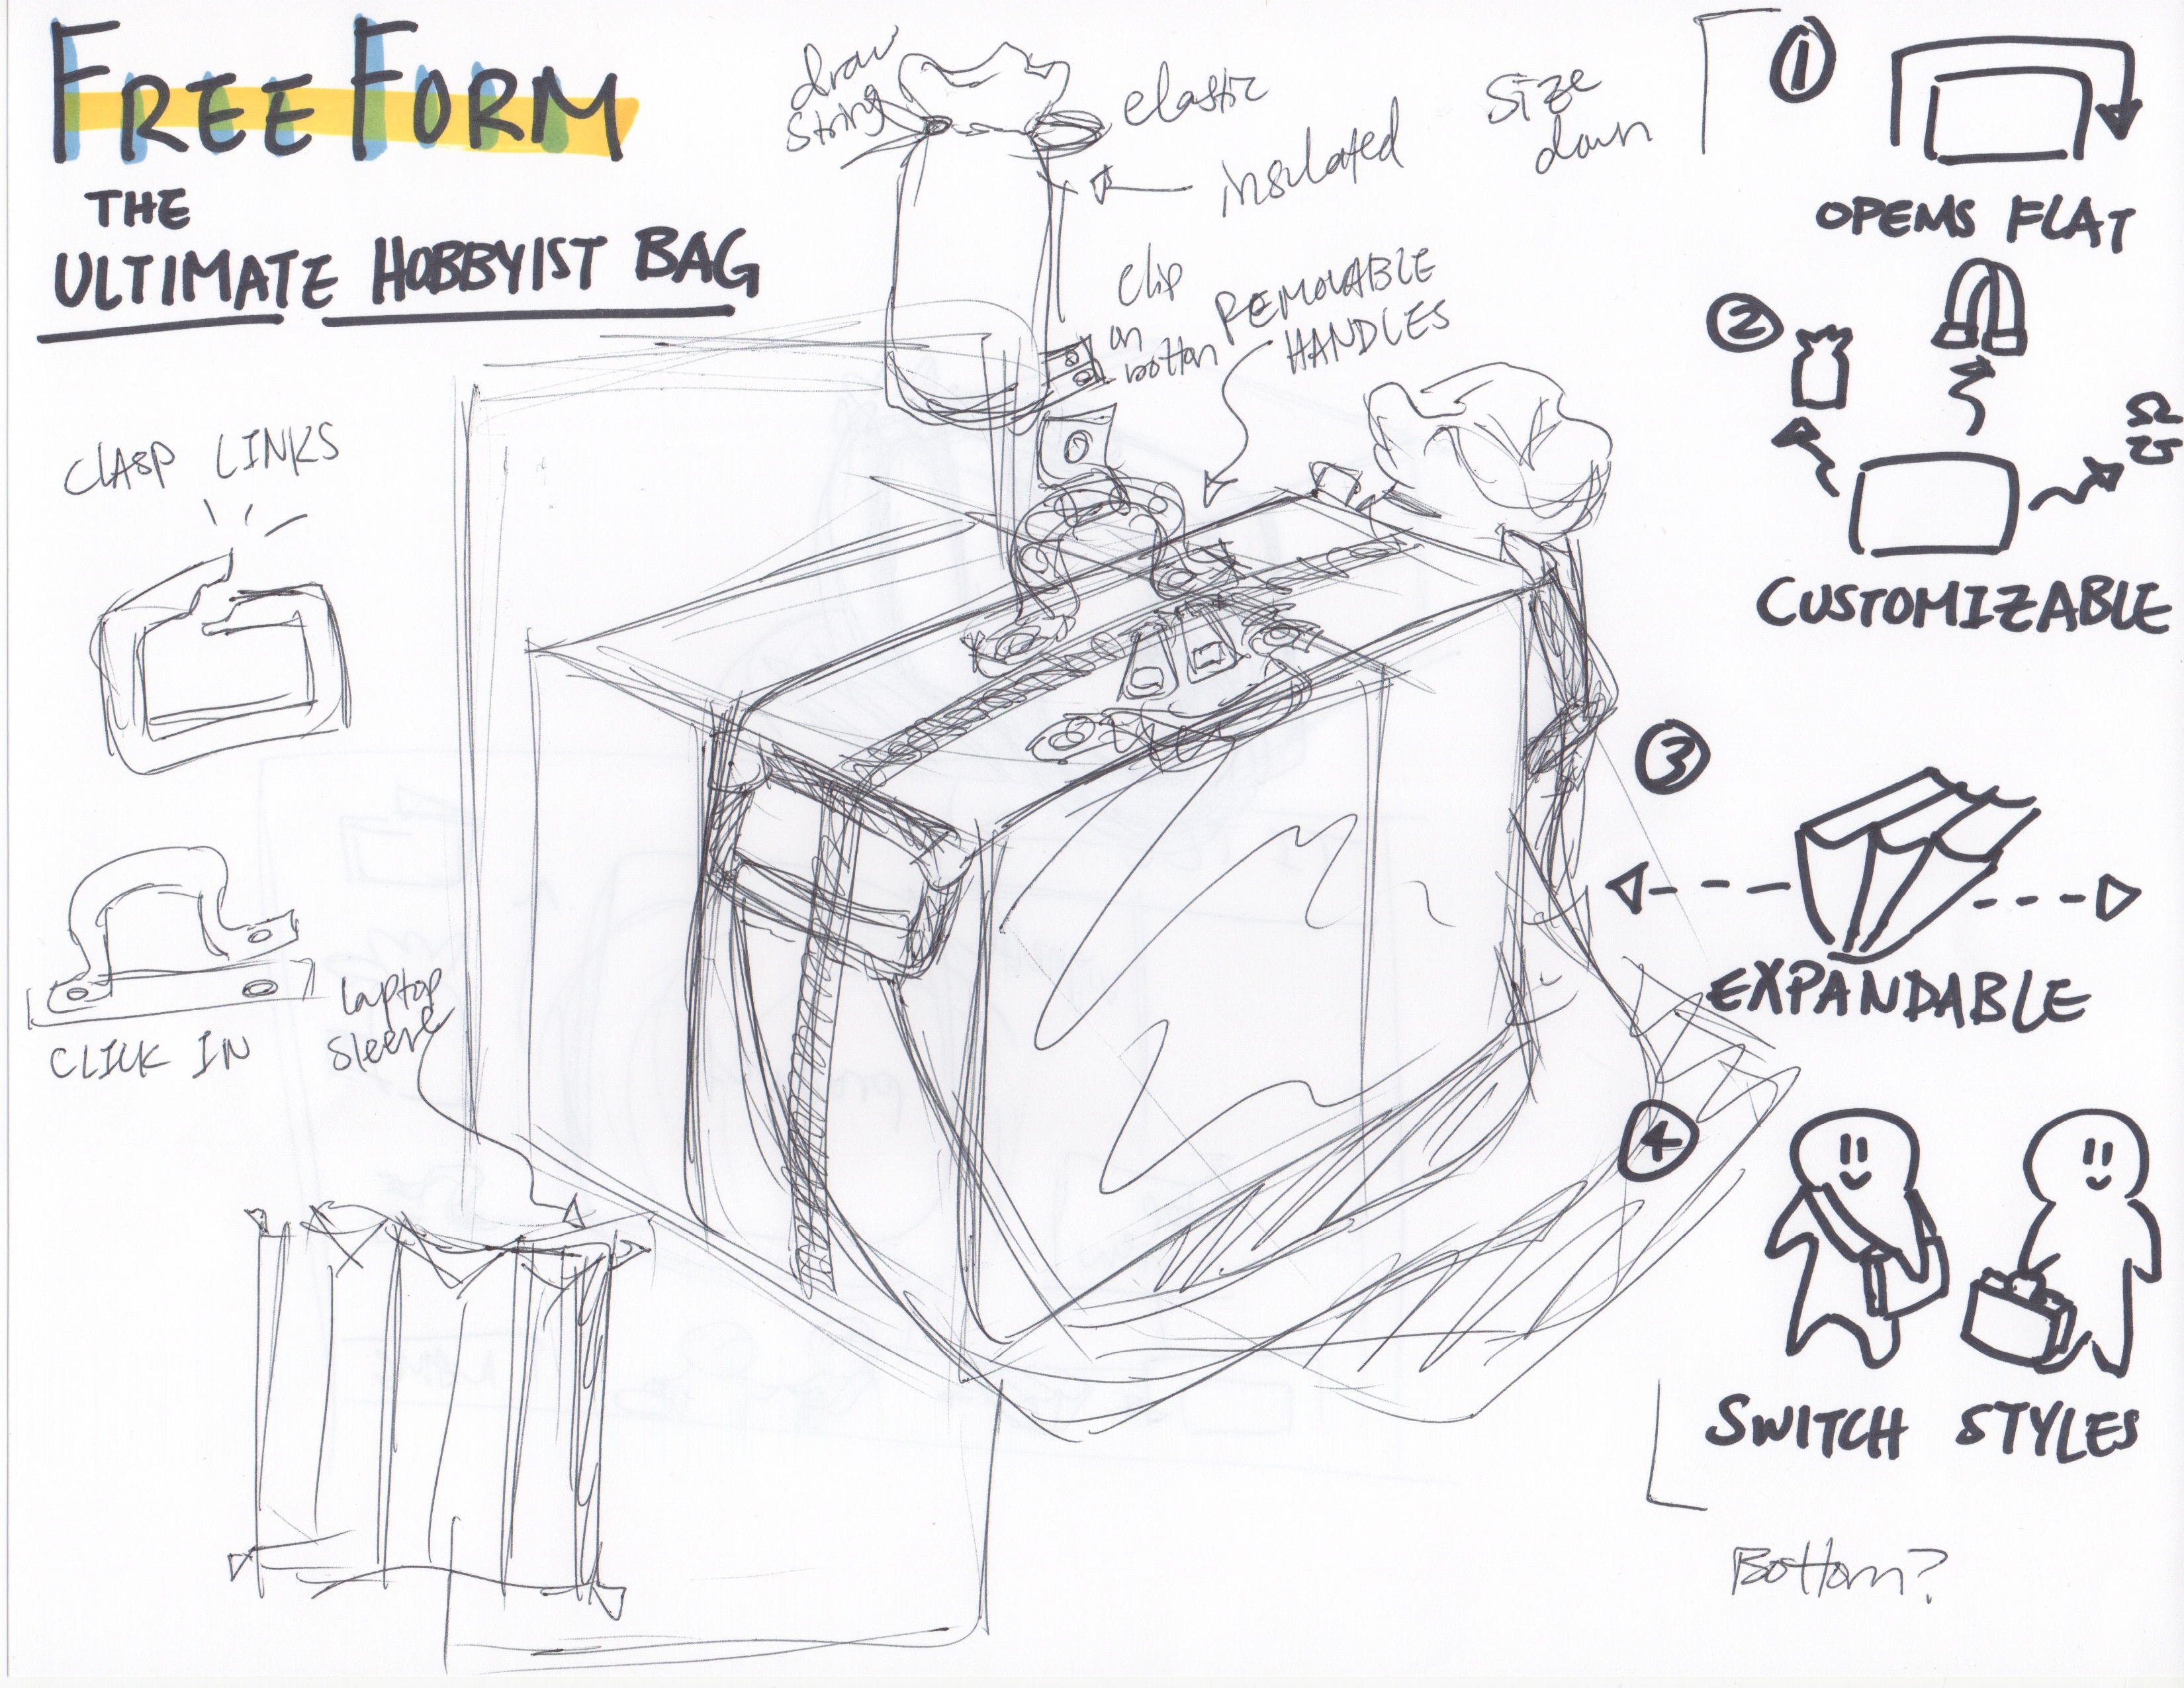 FREEFORM
THE
ULTIMATE HOBBYIST BAG
draw
string
elastic
insulated
size
down
clip
on
botton
REMOVABLE
HANDLES
CLASP LINKS
CLICK IN
laptop
sleeve
1
OPENS FLAT
2
CUSTOMIZABLE
3
EXPANDABLE
4
SWITCH STYLES
Bottom?